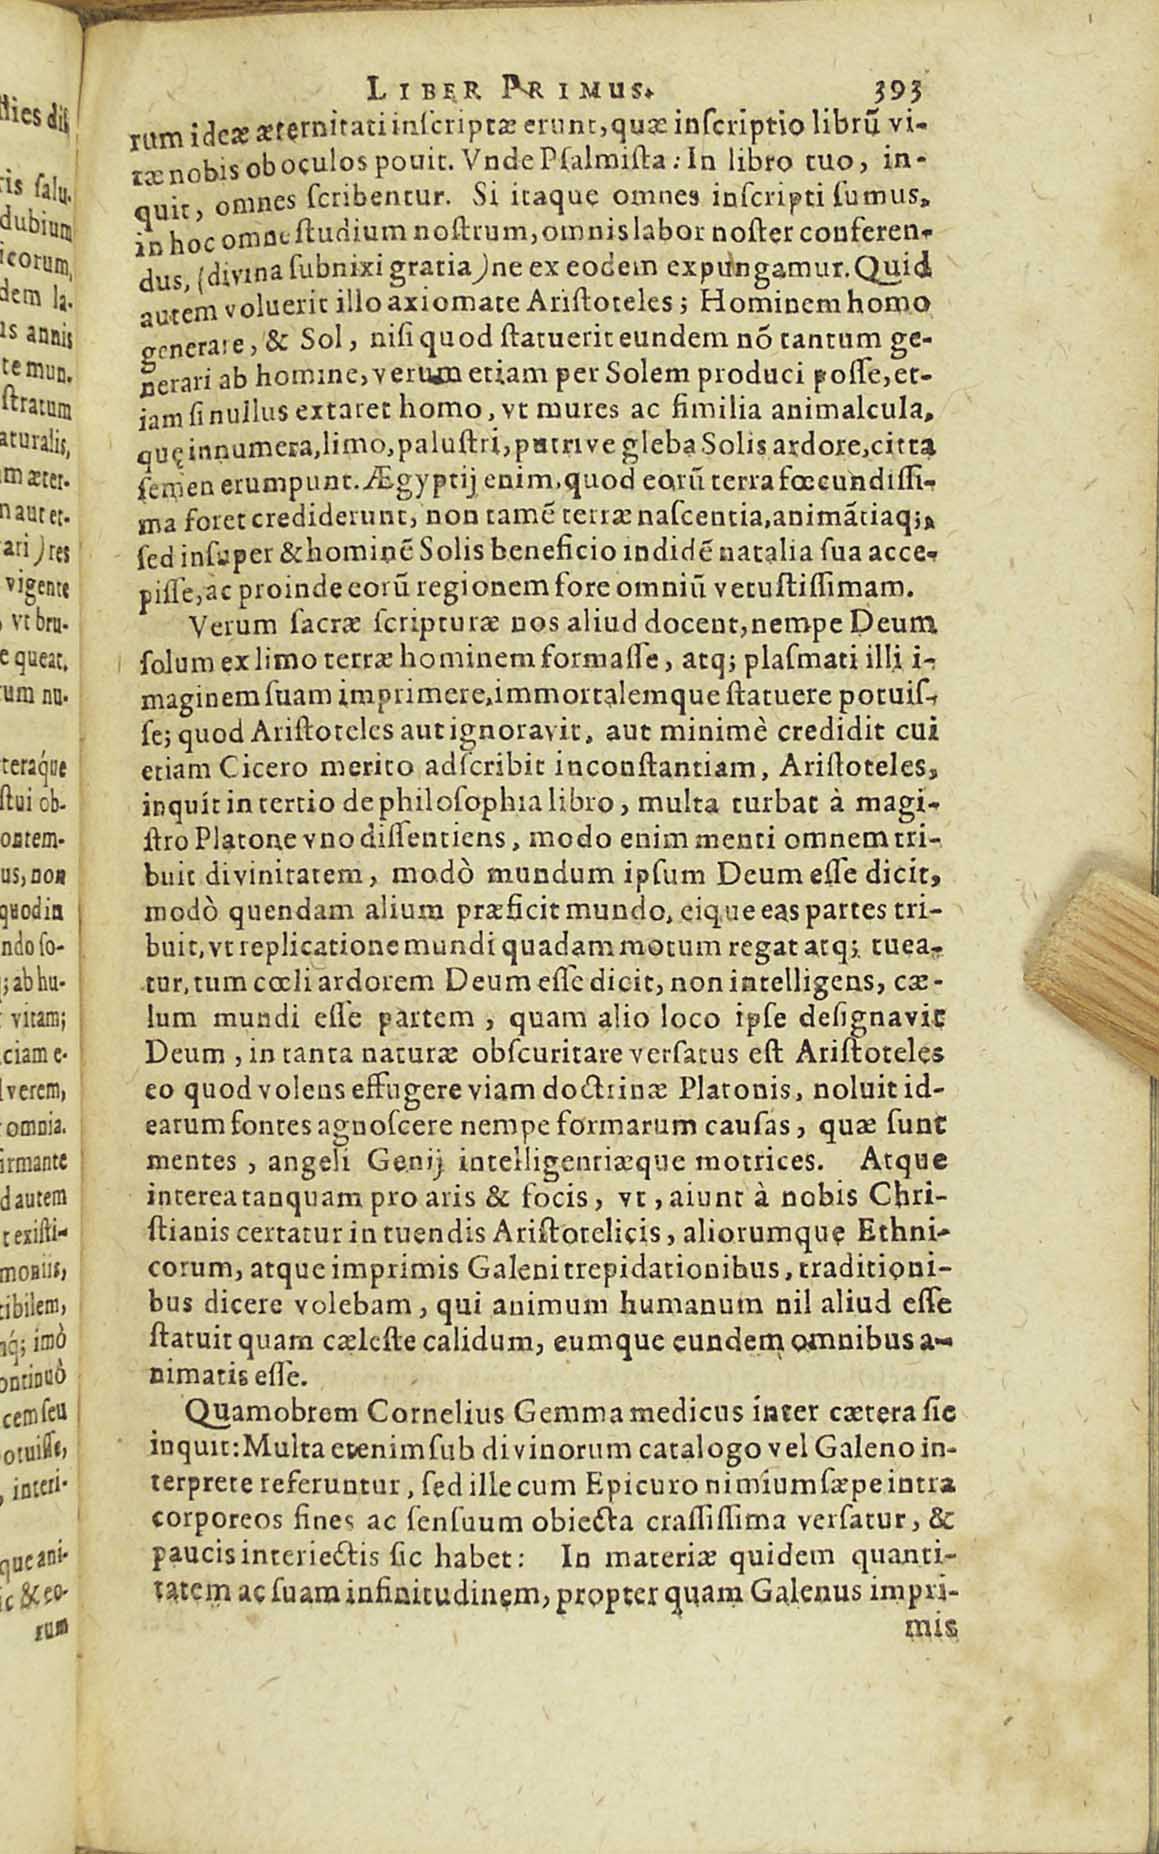 LIBER PRIMUS. 393
rum ideæ æternitati inſcriptæ erunt, quæ inſcriptio librũ vi-
tæ nobis ob oculos ponit. Vnde Pſalmiſta: In libro tuo, in-
quit, omnes ſcribentur. Si itaque omnes inſcripti ſumus,
in hoc omne ſtudium noſtrum, omnis labor noſter conferen-
dus, (divina ſubnixi gratia) ne ex eodem expungamur. Quid
autem voluerit illo axiomate Ariſtoteles; Hominem homo
generare, & Sol, niſi quod ſtatuerit eundem nõ tantum ge-
nerari ab homine, verum etiam per Solem produci poſſe, et-
iam ſi nullus extaret homo, vt mures ac ſimilia animalcula,
quę innumera, limo, paluſtri, putrive gleba Solis ardore, citra
ſemen erumpunt. Ægyptij enim, quod eorũ terra fœcundiſſi-
ma foret crediderunt, non tamẽ terræ naſcentia, animãtiaq;,
ſed inſuper & hominẽ Solis beneficio indidẽ natalia ſua acce-
piſſe, ac proinde eorũ regionem fore omniũ vetuſtiſſimam.
Verum ſacræ ſcripturæ nos aliud docent, nempe Deum
ſolum ex limo terræ hominem formaſſe, atq; plaſmati illi i-
maginem ſuam imprimere, immortalemque ſtatuere potuiſ-
ſe; quod Ariſtoteles aut ignoravit, aut minimè credidit cui
etiam Cicero merito adſcribit inconſtantiam, Ariſtoteles,
inquit in tertio de philoſophia libro, multa turbat à magi-
ſtro Platone vno diſſentiens, modo enim menti omnem tri-
buit divinitatem, modò mundum ipſum Deum eſſe dicit,
modò quendam alium præficit mundo, eique eas partes tri-
buit, vt replicatione mundi quadam motum regat atq; tuea-
tur, tum cœli ardorem Deum eſſe dicit, non intelligens, cæ-
lum mundi eſſe partem, quam alio loco ipſe deſignavit
Deum, in tanta naturæ obſcuritate verſatus eſt Ariſtoteles
eo quod volens effugere viam doctrinæ Platonis, noluit id-
earum fontes agnoſcere nempe formarum cauſas, quæ ſunt
mentes, angeli Genij intelligentiæque motrices. Atque
interea tanquam pro aris & focis, vt, aiunt à nobis Chri-
ſtianis certatur in tuendis Ariſtotelicis, aliorumque Ethni-
corum, atque imprimis Galeni trepidationibus, traditioni-
bus dicere volebam, qui animum humanum nil aliud eſſe
ſtatuit quam cæleſte calidum, eumque eundem omnibus a-
nimatis eſſe.
Quamobrem Cornelius Gemma medicus inter cætera ſic
inquit: Multa etenim ſub divinorum catalogo vel Galeno in-
terprete referuntur, ſed ille cum Epicuro nimium ſæpe intra
corporeos fines ac ſenſuum obiecta craſſiſſima verſatur, &
paucis interiectis ſic habet: In materiæ quidem quanti-
tatem ac ſuam infinitudinem, propter quam Galenus impri-
mis